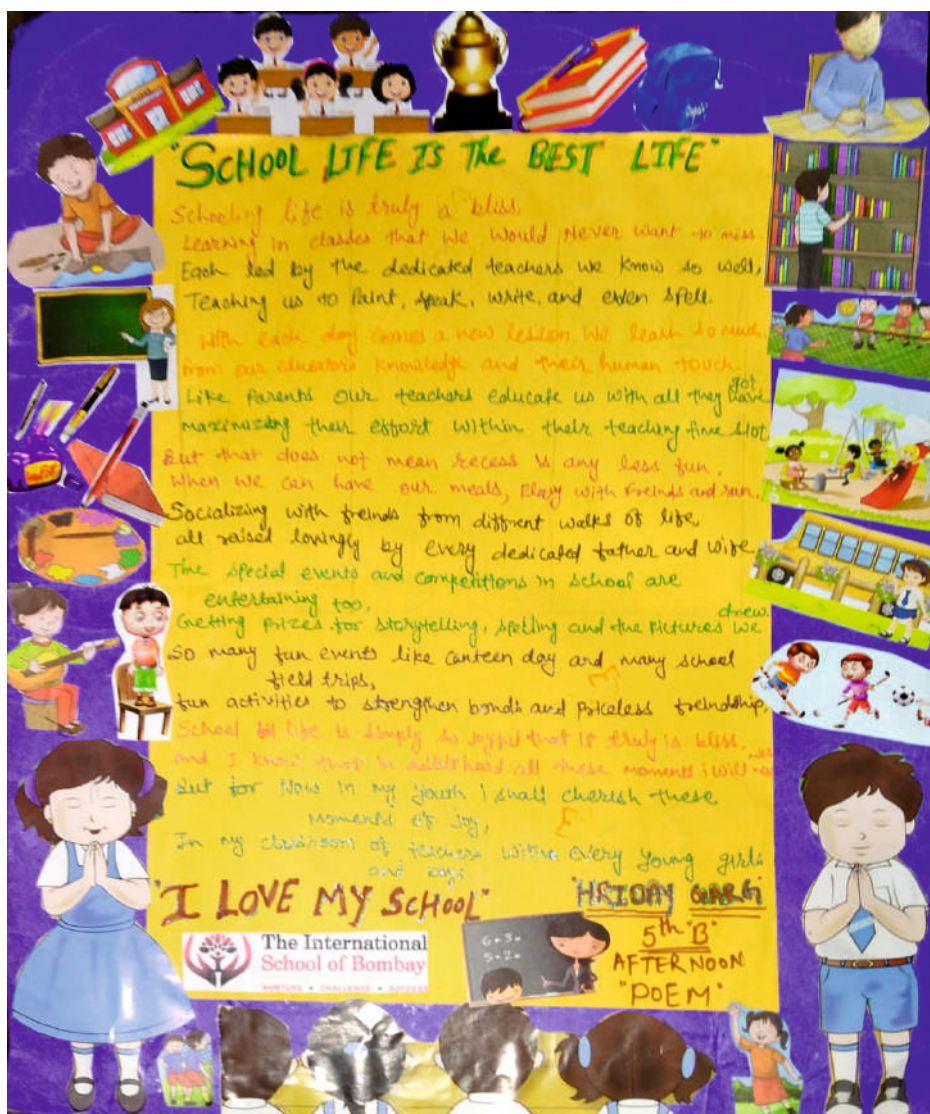 "SCHOOL LIFE IS The BEST LIFE"
Schooling life is truly a bliss,
Learning in classes that we would Never want to miss.
Each led by the dedicated teachers we know so well,
Teaching us to Paint, speak, write, and even spell.
With each day comes a new lesson we learn so much,
from our educator's knowledge and their human touch.
Like Parents our teachers educate us with all they have got
maximizing their effort within their teaching time slot
But that does not mean recess is any less fun,
When we can have our meals, Play with Freinds and run,
Socializing with freinds from diffrent walks of life,
all raised lovingly by every dedicated father and wife,
The special events and competitions in school are
entertaining too,
Getting prizes for storytelling, spelling and the pictures we drew.
So many fun events like canteen day and many school
field trips,
fun activities to strengthen bonds and Priceless freindship,
School life is simply so joyful that it truly is bliss,
And I know that in adulthood all these moments i will
But for Now in my youth i shall cherish these
moments of joy,
In my classroom of teachers with every young girls
and boy.
"I LOVE MY SCHOOL"
HRIDAY GARG
5th "B"
AFTERNOON
"POEM"
The International
School of Bombay
NURTURE • CHALLENGE • SUCCESS